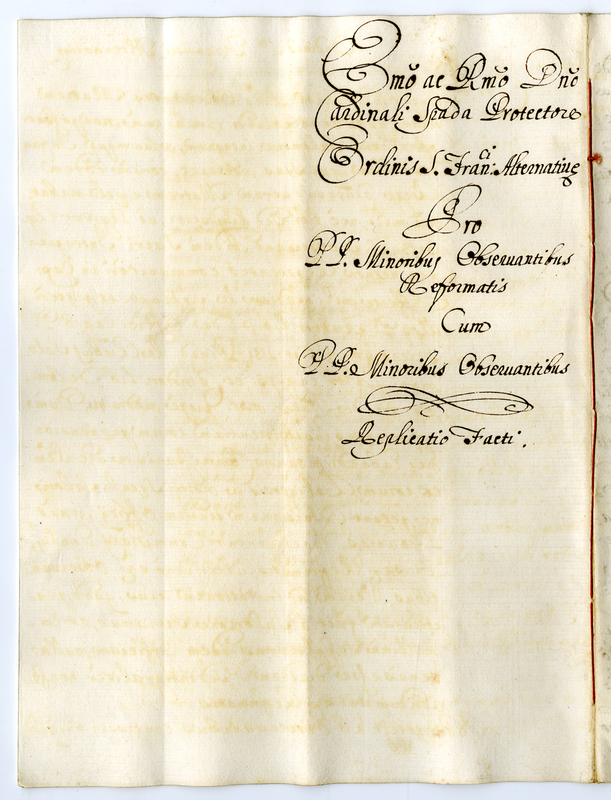 Emo ac Rmo Dno
Cardinali Spada Protectore
Ordinis S. Fran:ci Alternatiuę
Pro
PP. Minoribus Obseruantibus
Reformatis
Cum
PP. Minoribus Obseruantibus
Replicatio Facti.